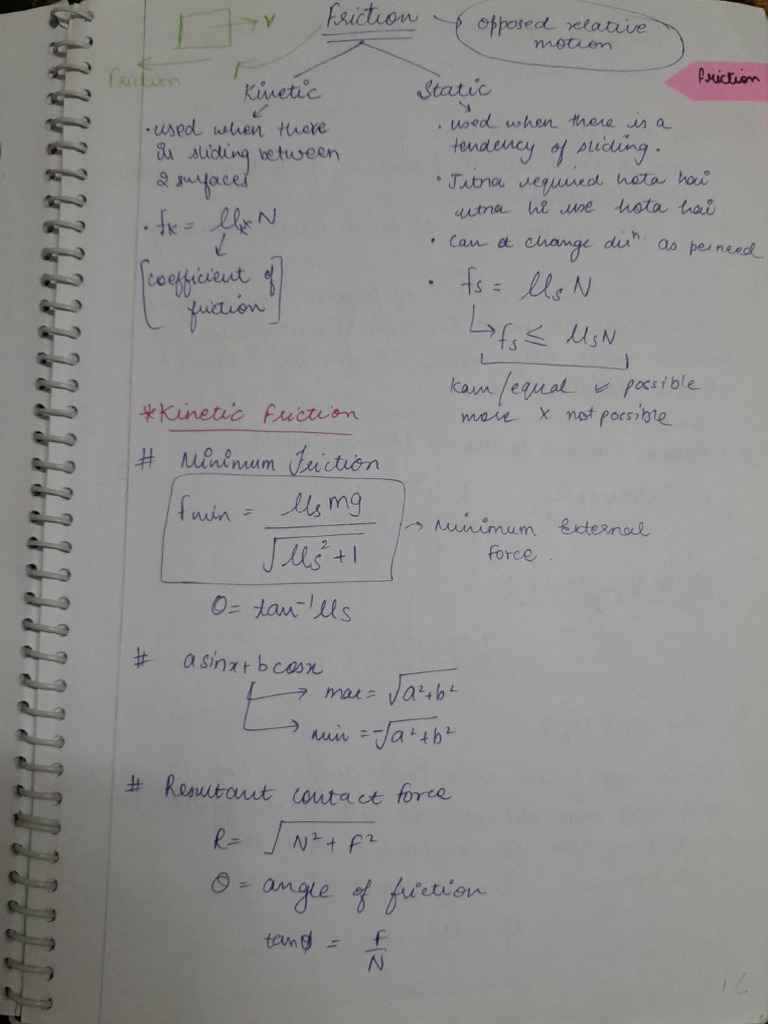 Friction
opposed relative
motion
V
Friction
Friction
Kinetic
• used when there
is sliding between
2 surfaces
• fk = μk N
[coefficient of
friction]
Static
• used when there is a
tendency of sliding.
• Jitna required hota hai
utna hi use hota hai
• Can change dirⁿ as per need
• fs = μs N
fs ≤ μs N
kam/equal ✓ possible
more × not possible
*Kinetic Friction
# Minimum Friction
fmin = μs mg / √(μs² + 1) → Minimum External
Force.
θ = tan⁻¹ μs
# a sinx + b cosx
→ max = √(a² + b²)
→ min = -√(a² + b²)
# Resultant contact force
R = √(N² + F²)
θ = angle of friction
tanϕ = F/N
16